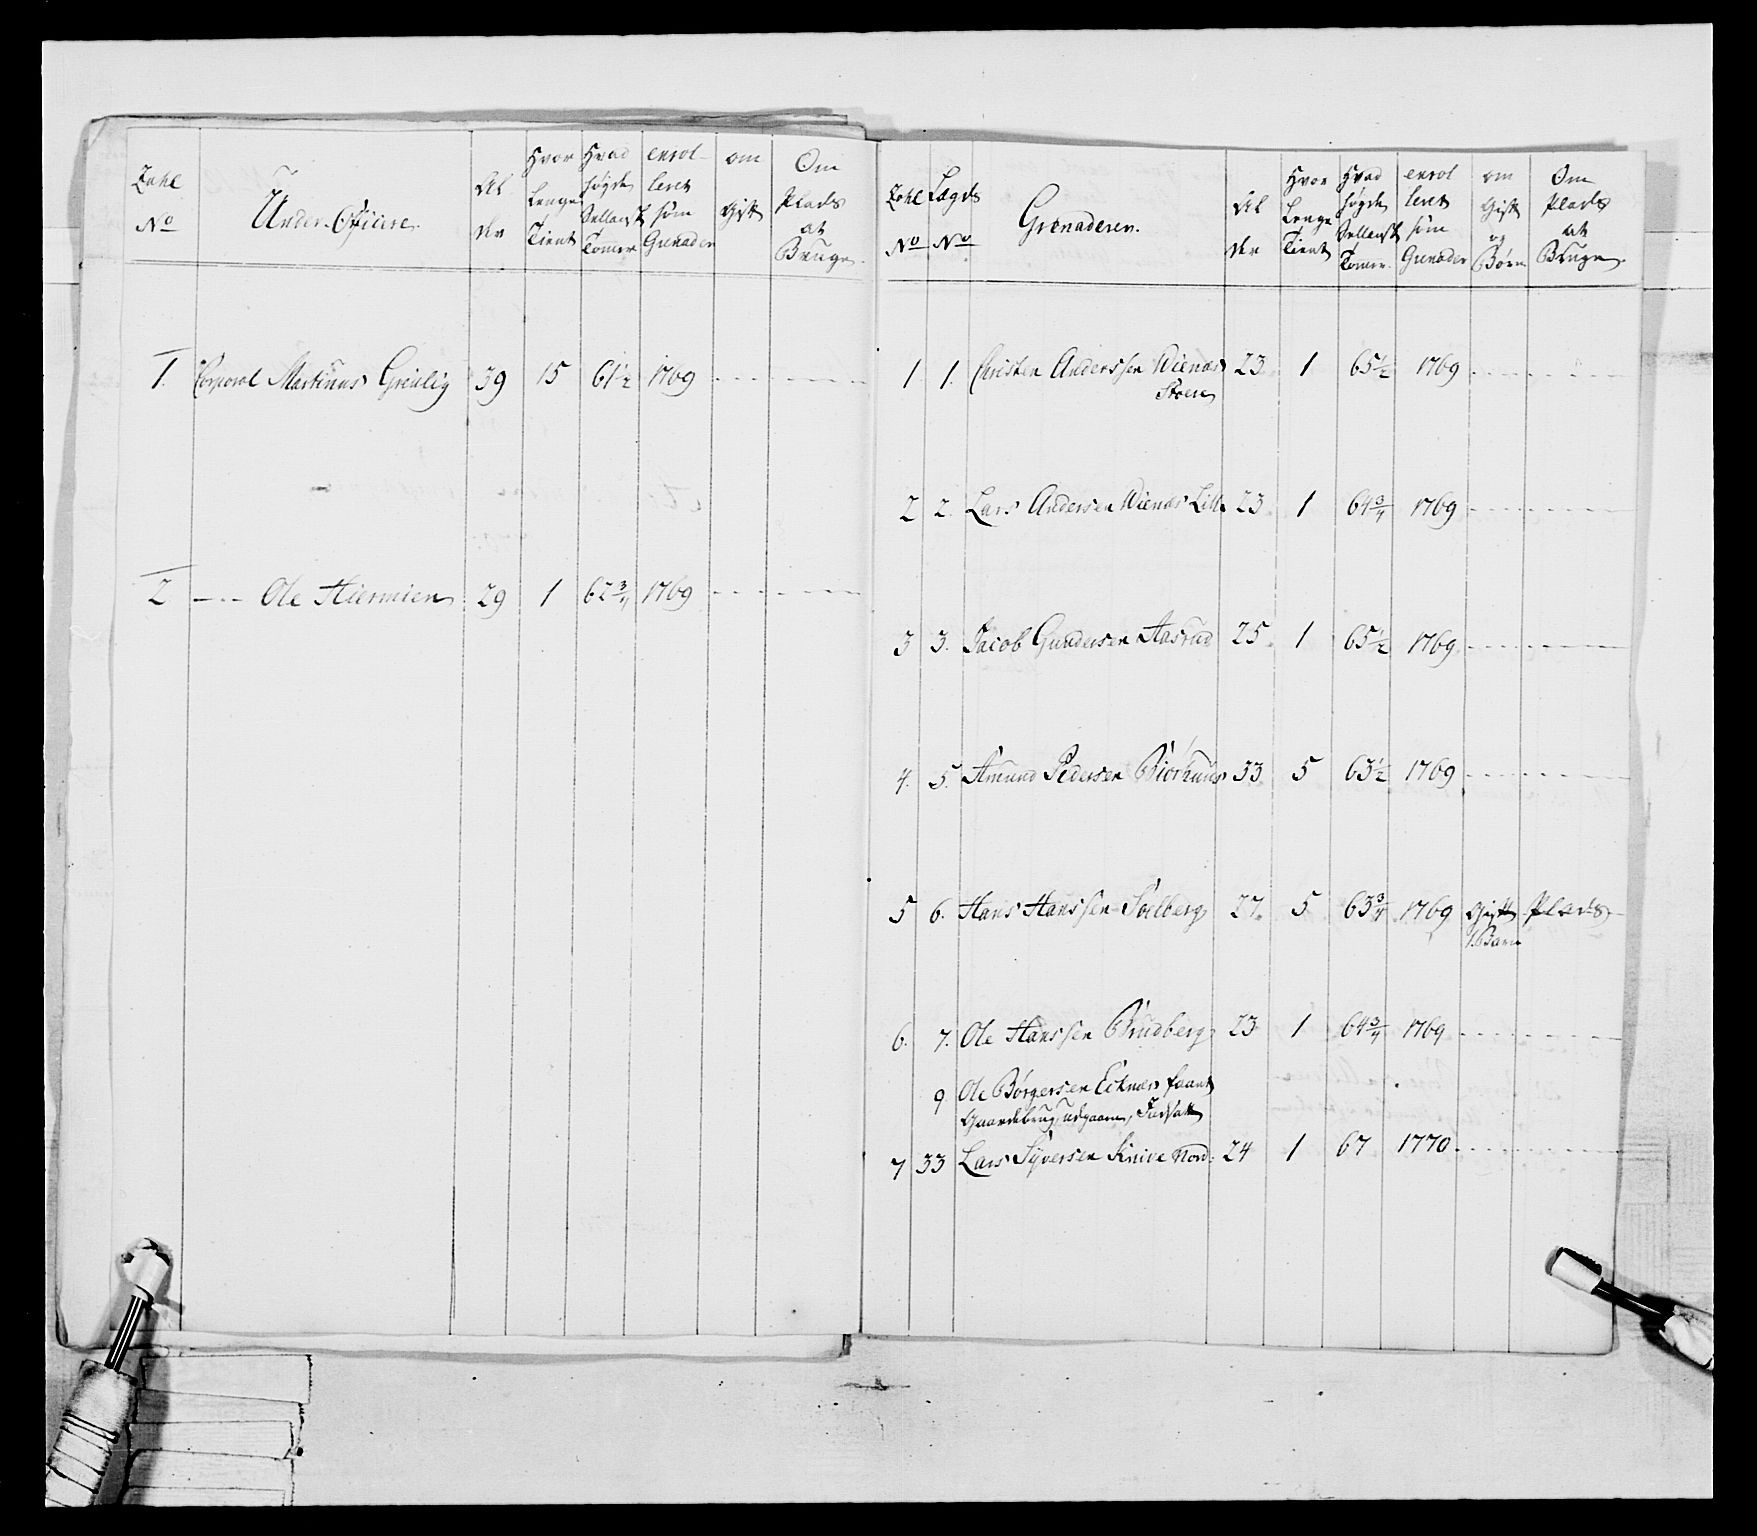 Zahl No Under-Officiere. Al der Hvor Lenge Tient Hvad høyde Sellandsk Tomer enrolleret som Grenader om Gift Om Plads at Bruge.
1. Corporal Martinus Greulig 39 15 61½ 1769
2 — Ole Hiermien 29 1 62¾ 1769
Zahl No Lægds No Grenaderer. Al der Hvor Lenge Tient Hvad høyde Sellandsk Tomer enrolleret som Grenader om Gift og Børn Om Plads at Bruge.
1 1. Christen Anderssen Wienæs 23 1 65½ 1769
Stoere
2 2. Lars Andersen Wienæs Lille 23 1 64¾ 1769
3 3. Jacob Gundersen Aasrud 25 1 65½ 1769
4. 5. Amund Pedersen Biørhuus 33 5 63½ 1769
5 6. Hans Hanssen Soelberg 27. 5 63¾ 1769 Gift Plads
1. Barn
6. 7. Ole Hanssen Brudberg 23 1 64¾ 1769
9. Ole Børgersen Ecknæs faaet
Gaardebrug, udgaaen, Indsatt
7 33 Lars Syversen Knive Nord: 24 1 67 1770